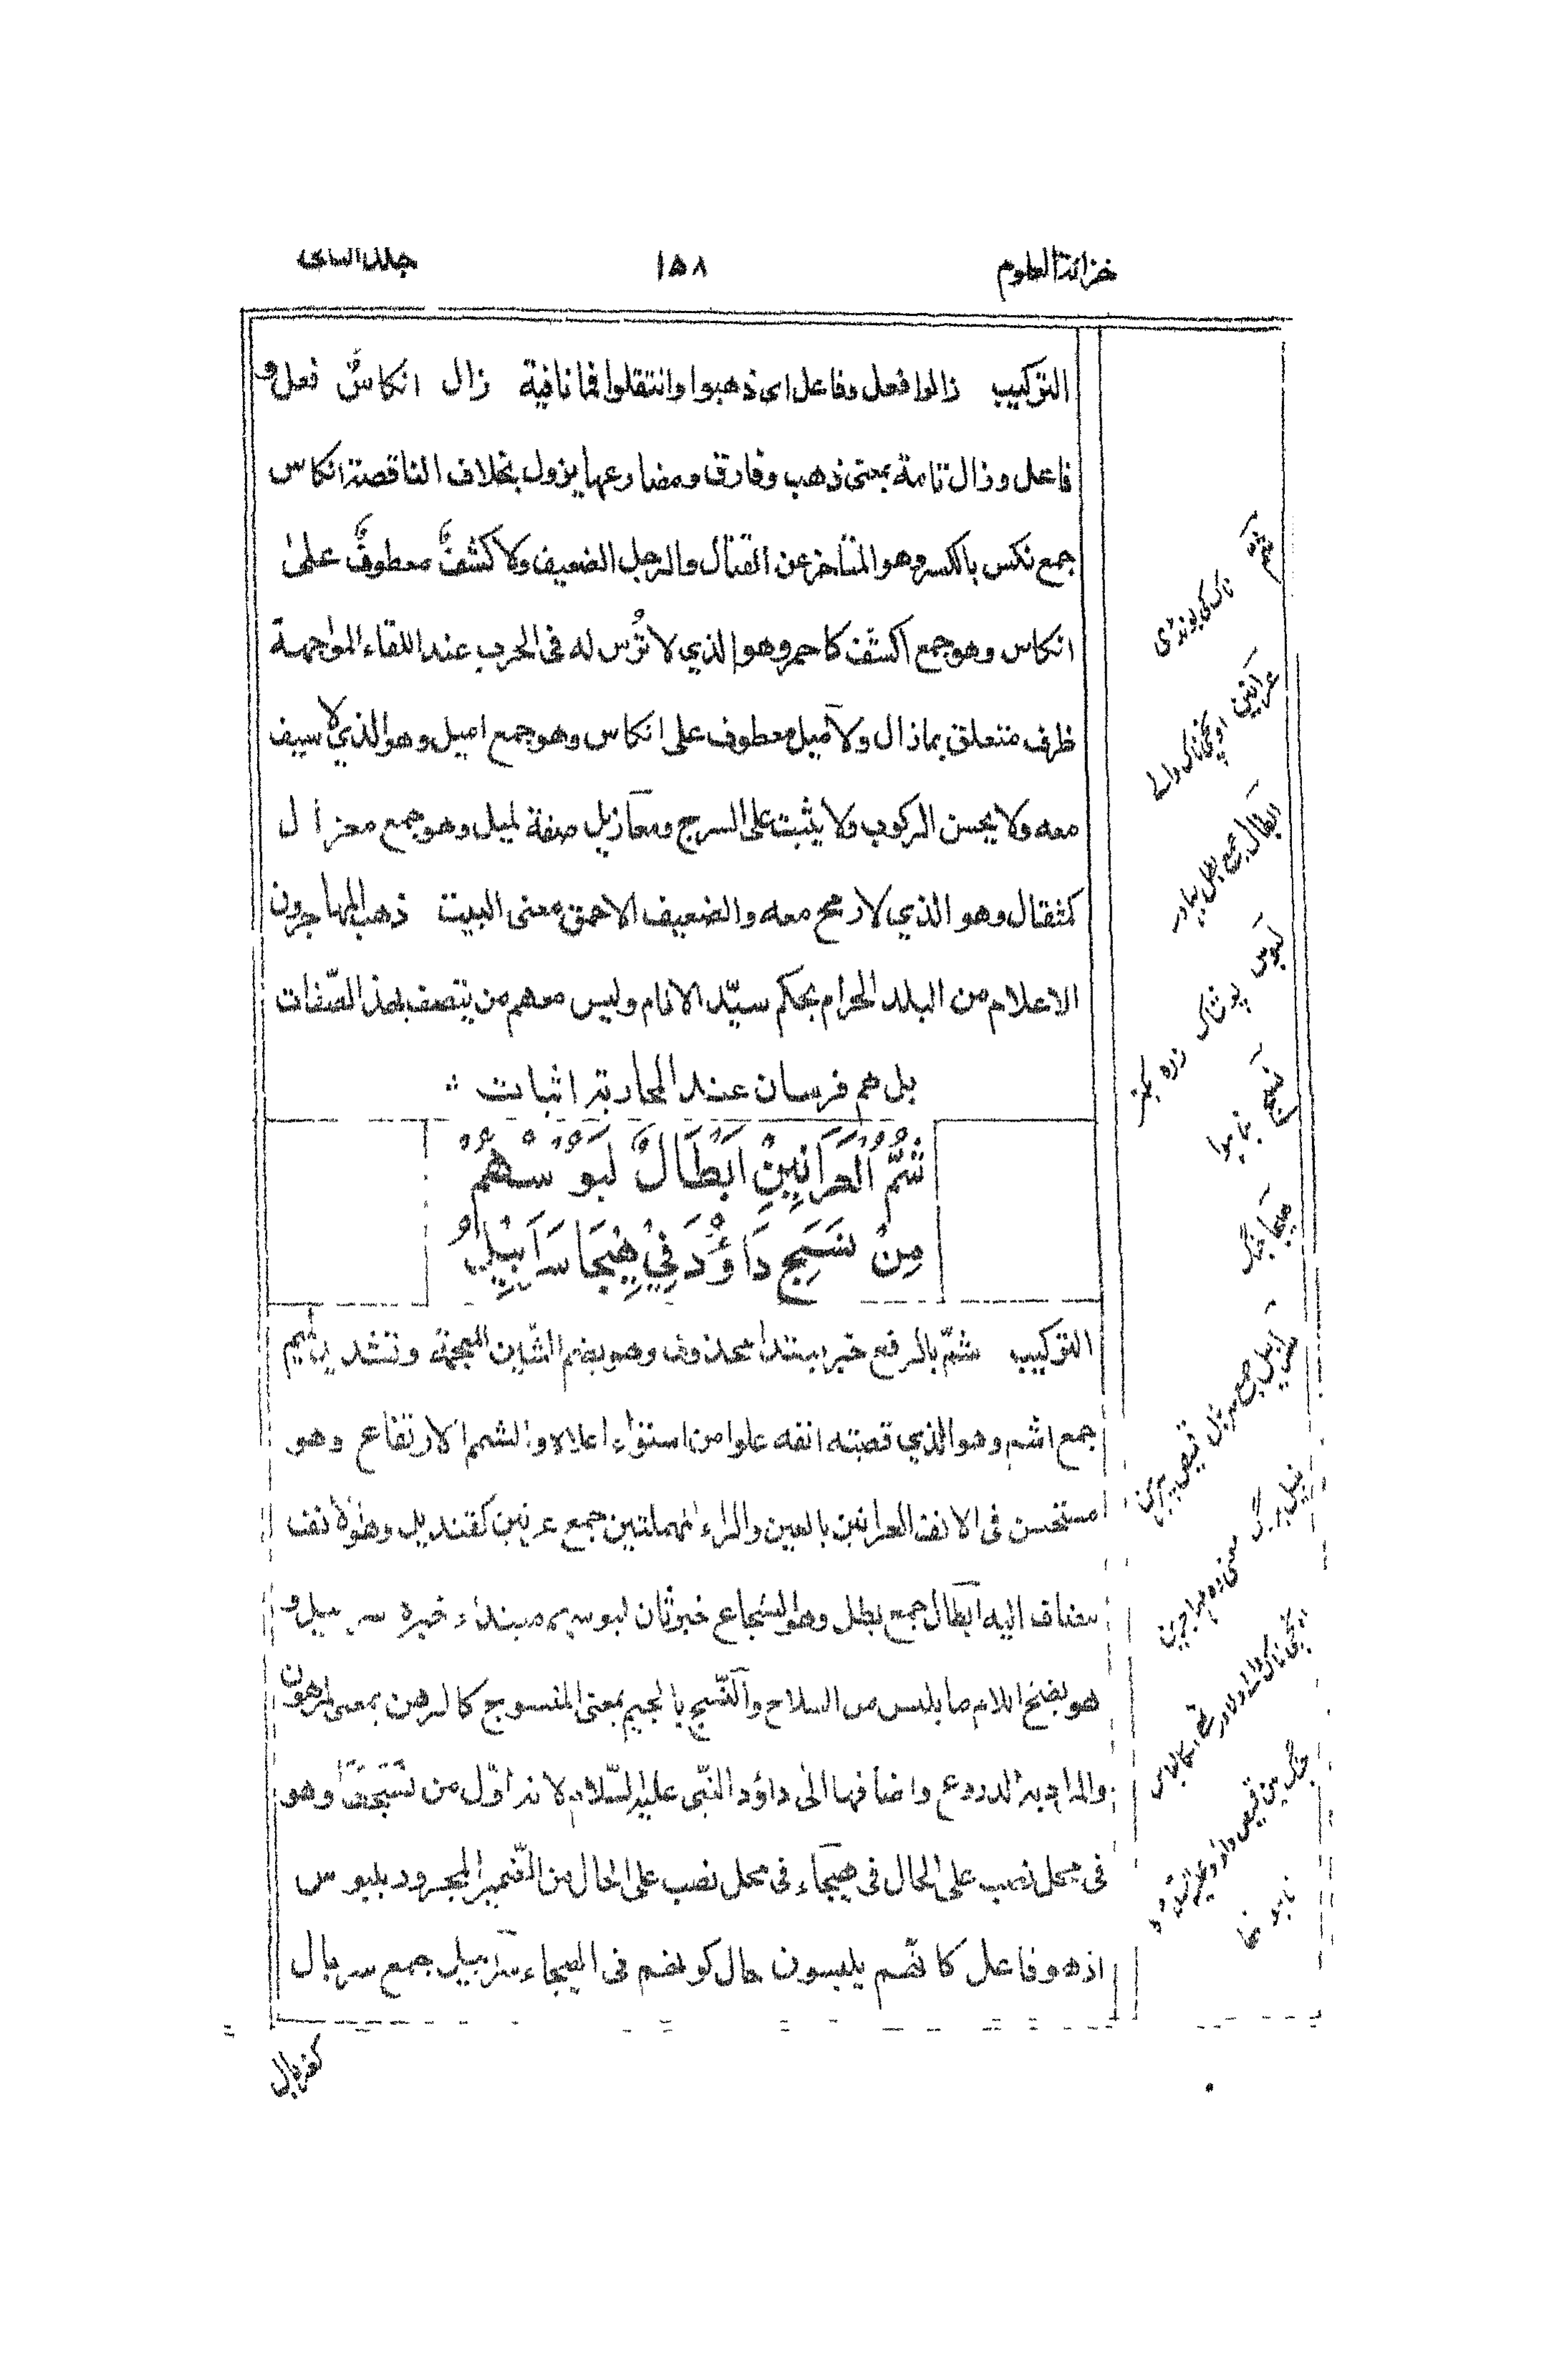 خزانة العلوم ١٥٨ جلد السادس
التركيب زالوا فعل وفاعل اى ذهبوا وانتقلوا فما نافية زال انكاسٌ فعل و
فاعل وزال تامة بمعنى ذهب وفارق ومضارعها يزول بخلاف الناقصة انكاس
جمع نكس بالكسر وهو المتاخر عن القتال والرجل الضعيف ولا كشفٌ معطوفٌ على
انكاس وهو جمع اكشف كاحمر وهو الذي لا تُرس له فى الحرب عند اللقاء المواجهة
ظرف متعلق بمازال ولا ميل معطوف على انكاس وهو جمع اميل وهو الذي لا سيف
معه ولا يحسن الركوب ولا يثبت على السرج ومعازيل صفة لميل وهو جمع معزال
كمثقال وهو الذي لا رمح معه والضعيف الاحمق معنى البيت ذهب المهاجرون
الاعلام من البلد الحرام بحكم سيّد الانام وليس معهم من يتصف بهذ الصّفات
بل هم فرسان عند المحاربة اثبات
شُمُّ الْعَرَانِيْنِ اَبْطَالٌ لَبُوْسُهُمْ
مِنْ نَسَجِ دَاؤُدَ فِيْ هِيْجَا سَرَابِيْلُ
التركيب شمّ بالرفع خبر مبتدا محذوف وهو بضم الشّين المعجمة وتشديد الميم
جمع اشم وهو الذي قصبته انفه علوا من استواء اعلاه والشمم الارتفاع وهو
مستحسن فى الانف العرانين بالعين والراء المهملتين جمع عرنين كقنديل وهو الانف
مضاف اليه ابطال جمع بطل وهو الشجاع خبر ثان لبوسهم مبتداء خبره سرابيل و
هو بفتح اللام ما يلبس من السلاح والنّسج بالجيم بمعنى المنسوج كالرهن بمعنى المرهون
والمراد به الدروع واضافها الى داؤد النّبى عليه السّلام لانه اوّل من نسجها وهو
فى محل نصب على الحال فى هيجاء فى محل نصب على الحال من الضّمير المجرور بلبوس
اذ هو فاعل كانهم يلبسون حال كونهم فى الهيجاء سرابيل جمع سربال
كغربال
شم ناک کی پونڈی
عرانین اونچی ناک والے
ابطال جمع بطل بہادر
لبوس پوشاک زره بکتر
نسج بنا ہوا
هیجا جنگ
سرابیل جمع سربال قمیص پیراہن
معنی وه مہاجرین